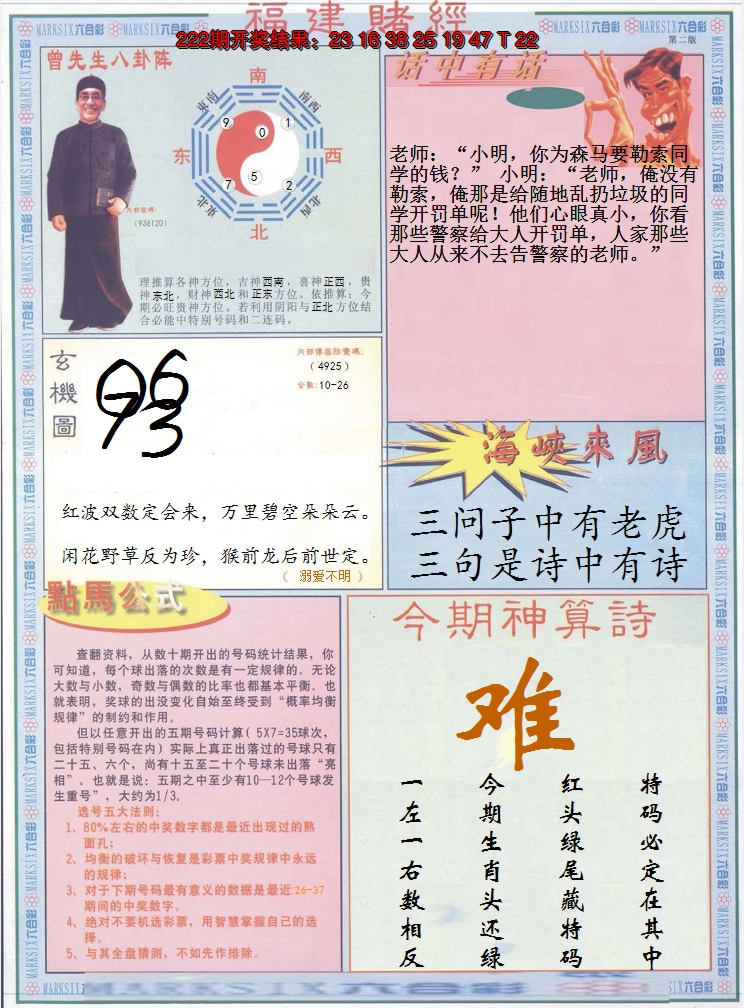 福建賭經
MARKSIX六合彩 MARKSIX六合彩 MARKSIX六合彩 MARKSIX六合彩
222期开奖结果：23 16 38 25 19 47 T 22
第二版
曾先生八卦阵
南
东南
南西
9
0
1
东
西
7
5
2
東北
北西
北
内部密碼:
(936120)
理推算各神方位，吉神西南，喜神正西，贵
神东北，财神西北和正东方位。依推算：今
期必旺贵神方位。若利用阴阳与正北方位结
合必能中特别号码和二连码。
话中有话
老师：“小明，你为森马要勒索同
学的钱？” 小明：“老师，俺没有
勒索，俺那是给随地乱扔垃圾的同
学开罚单呢！他们心眼真小，你看
那些警察给大人开罚单，人家那些
大人从来不去告警察的老师。”
玄機圖
内部傳密防變碼:
（4925）
合數:10-26
红波双数定会来，万里碧空朵朵云。
闲花野草反为珍，猴前龙后前世定。
（ 溺爱不明 ）
海峽來風
三问子中有老虎
三句是诗中有诗
點馬公式
查翻资料，从数十期开出的号码统计结果，你
可知道，每个球出落的次数是有一定规律的。无论
大数与小数，奇数与偶数的比率也都基本平衡。也
就表明，奖球的出没变化自始至终受到“概率均衡
规律”的制约和作用。
但以任意开出的五期号码计算( 5X7=35球次，
包括特别号码在内）实际上真正出落过的号球只有
二十五、六个，尚有十五至二十个号球未出落“亮
相”。也就是说：五期之中至少有10—12个号球发
生重号”，大约为1/3。
选号五大法则：
1、80%左右的中奖数字都是最近出现过的熟
面孔；
2、均衡的破坏与恢复是彩票中奖规律中永远
的规律；
3、对于下期号码最有意义的数据是最近26-37
期间的中奖数字。
4、绝对不要机选彩票，用智慧掌握自己的选
择。
5、与其全盘猜测，不如先作排除。
今期神算詩
难
特码必定在其中
红头绿尾藏特码
今期生肖头还绿
一左一右数相反